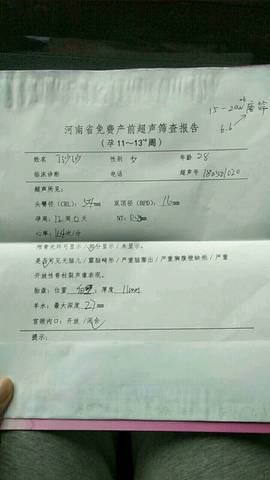 15-20周唐筛
6.6
河南省免费产前超声筛查报告
(孕11~13⁺⁶周)
姓名 性别 女 年龄 28
临床诊断 电话 超声号
超声所见:
头臀径(CRL): 54mm 双顶径(BPD): 16mm
孕周: 12周0天 NT: mm
心率: 次/分
可显示/部分显示/未显示。
是否可见无脑儿/露脑畸形/严重脑膨出/严重胸腹壁缺损/严重
开放性脊柱裂声像表现。
胎盘: 位置 厚度 11mm
羊水: 最大深度 27mm
宫颈内口: 开放/闭合
提示: